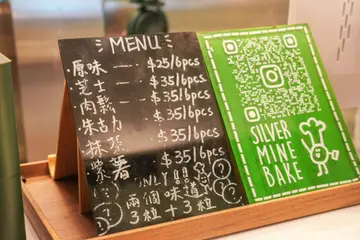 MENU
·原味 — $25/6pcs
·芝士 — $35/6pcs
·肉鬆 — $35/6pcs
·朱古力 $35/6pcs
·抹茶 — $35/6pcs
紫薯 — $35/6pcs
ONLY!!!
兩個味道
3粒+3粒
SILVER
MINE
BAKE